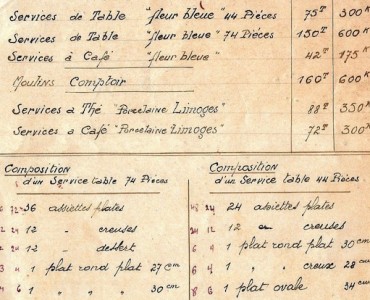 Services de Table "fleur bleue" 44 Pièces 75T 300K
Services de Table "fleur bleue" 74 Pièces 150T 600K
Services à Café "fleur bleue" 42T 175K
Moulins Comptoir 160T 600K
Services à Thé "Porcelaine Limoges" 88T 350K
Services a Café "Porcelaine Limoges" 72T 300K
Composition
d'un Service table 74 Pièces
36 assiettes plates
12 " creuses
12 " dessert
1 plat rond plat 27 cm
1 " " 30 cm
Composition
d'un Service table 44 Pièces
24 assiettes plates
12 creuses
1 plat rond plat 30 cm
1 " " creux 28 cm
1 plat ovale 34 cm